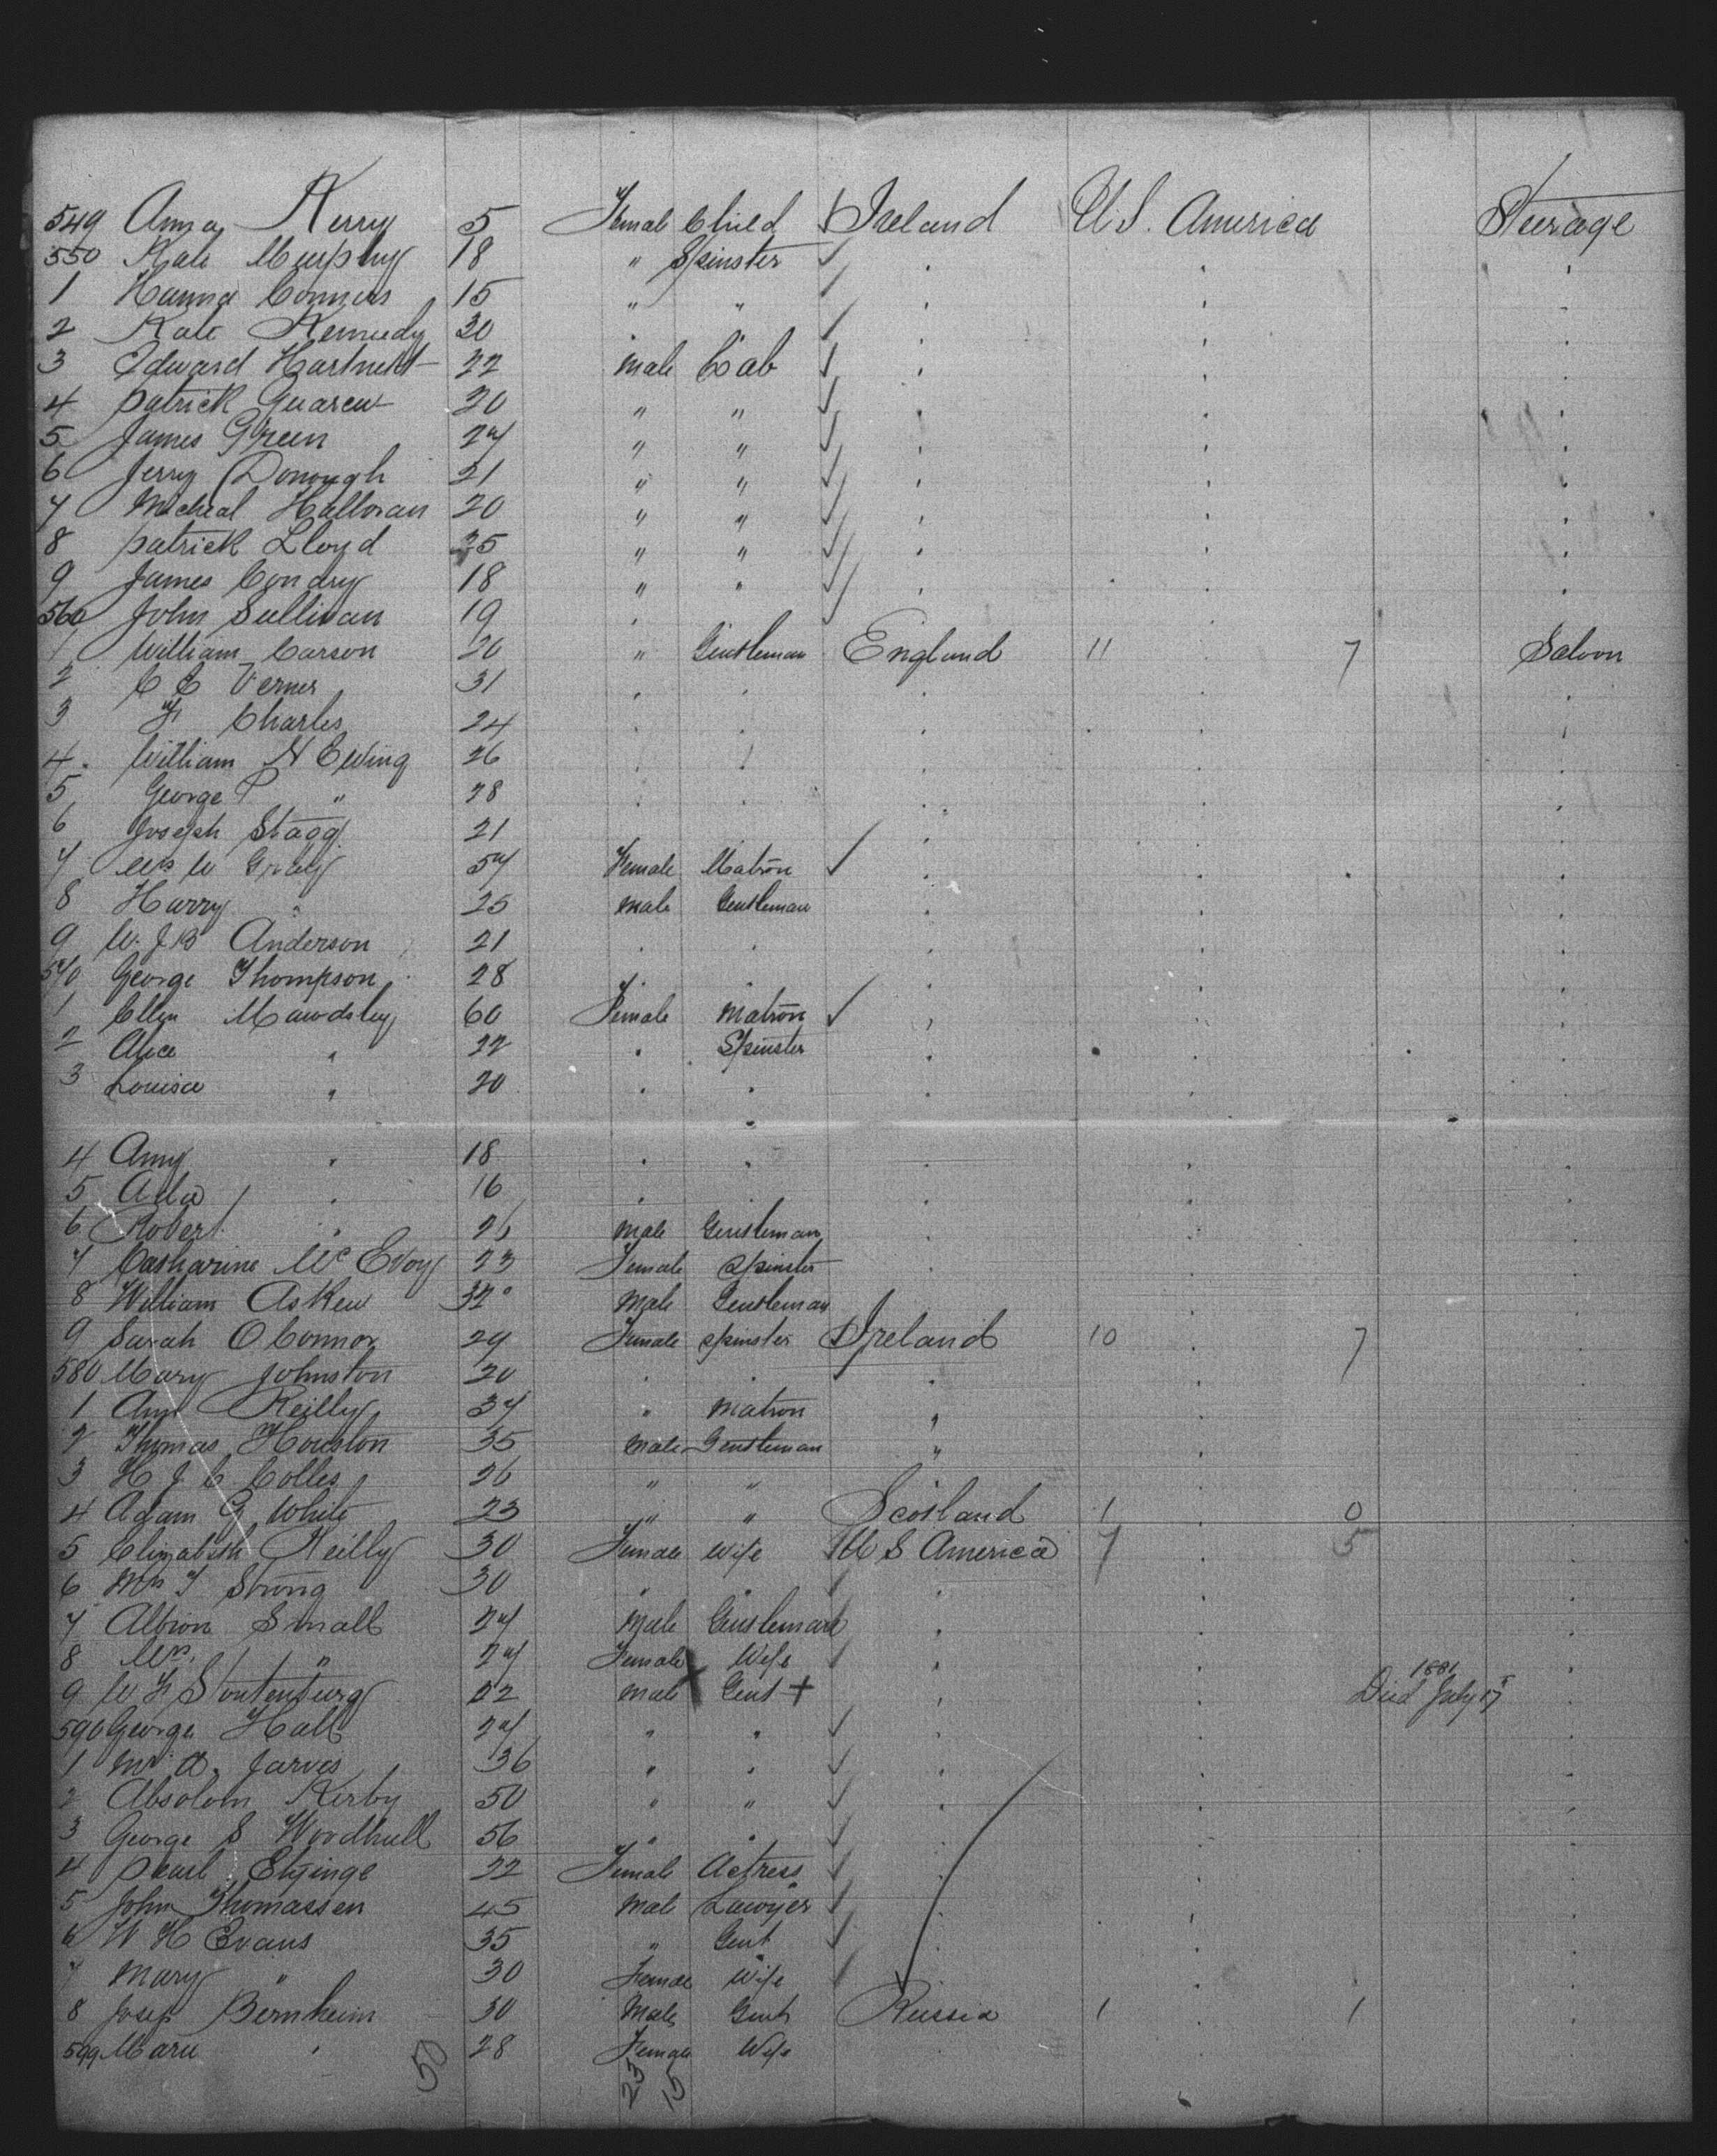 549 Anna Kerry 5 Female Child Ireland U S. America Steerage
550 Kate Murphy 18 " Spinster
1 Hanna Connors 15 " "
2 Kate Kennedy 30 "
3 Edward Hartnett 22 male Lab
4 patrick 20 " "
5 James Green 24 " "
6 Jerry Donough 21 " "
7 Micheal Halloran 20 " "
8 patrick Lloyd 35 " "
9 James Condry 18 " "
560 John Sullivan 19
1 William Carson 20 " Gentleman England 11 7 Saloon
2 C E Verner 31
3 F Charles 24
4 William N Ewing 26
5 George P " 28
6 Joseph Stagg 21
7 Mrs W Gray 54 Female Matron
8 Harry " 25 male Gentleman
9 W. J B Anderson 21
570 George Thompson 28
1 Ellen Mawdsley 60 Female Matron
2 Alice " 22 Spinster
3 Louisa " 20
4 Amy " 18
5 Ada " 16
6 Robert " 26 male Gentleman
7 Catharine Mc Evoy 23 Female Spinster
8 William Askew 32 Male Gentleman
9 Sarah O Connor 29 Female Spinster Ireland 10 7
580 Mary Johnston 20
1 Ann Reilly 34 " Matron "
2 Thomas Houston 35 male Gentleman "
3 H J C Colles 26 " "
4 Adam G White 23 " " Scotland 1 0
5 Elizabeth Reilly 30 Female Wife U S America 7 5
6 Mrs T Strong 30
7 Albion Small 27 Male Gentleman
8 Mrs " 24 Female Wife
9 W F Stoutenburg 22 male Gent + Died July 17 1881
590 George Hall 24 " "
1 Mr A. Jarves 36 " "
2 Absolom Kirby 50 " "
3 George S Woodhull 56 " "
4 pearl Etynge 22 Female Actress
5 John Thomassen 45 Male Lawyer
6 W H Evans 35 " Gent
7 Mary " 30 Female Wife
8 Josep Bernheim 30 Male Gent Russia 1 1
599 Marie " 28 Female Wife
50 23 15